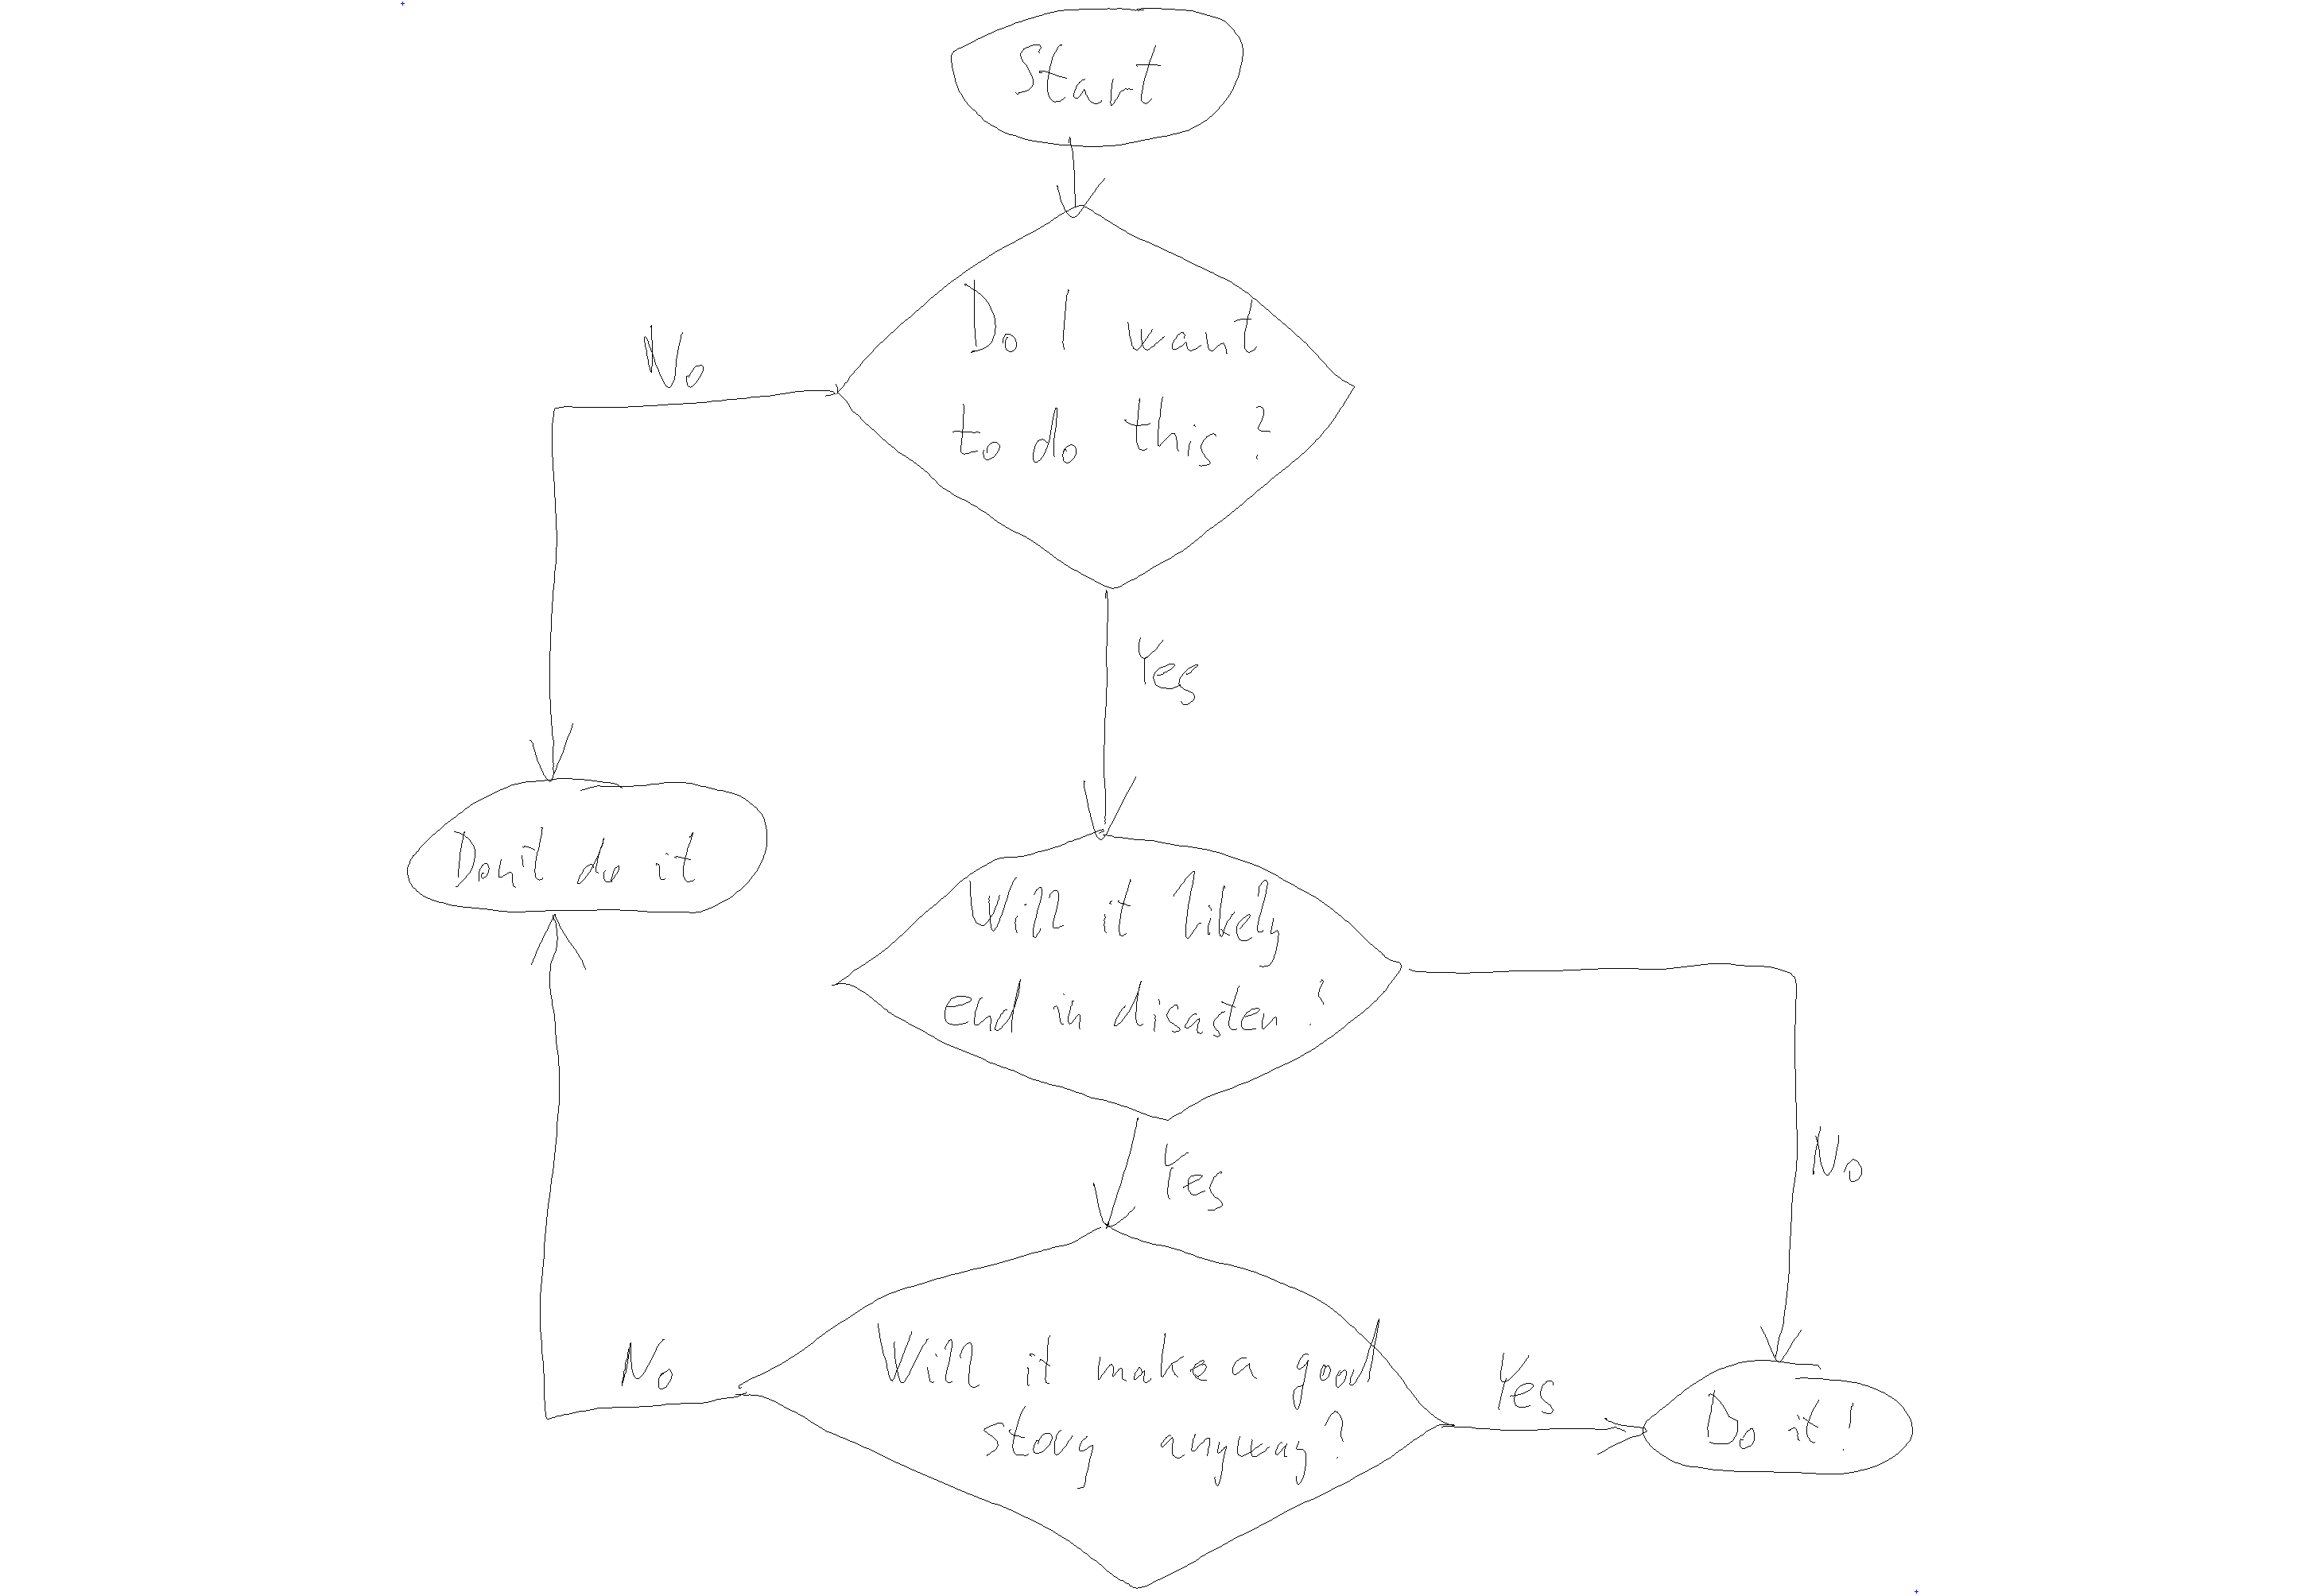 Start
Do I want
to do this?
No
Yes
Don't do it
Will it likely
end in disaster?
Yes
No
Will it make a good
story anyway?
No
Yes
Do it!